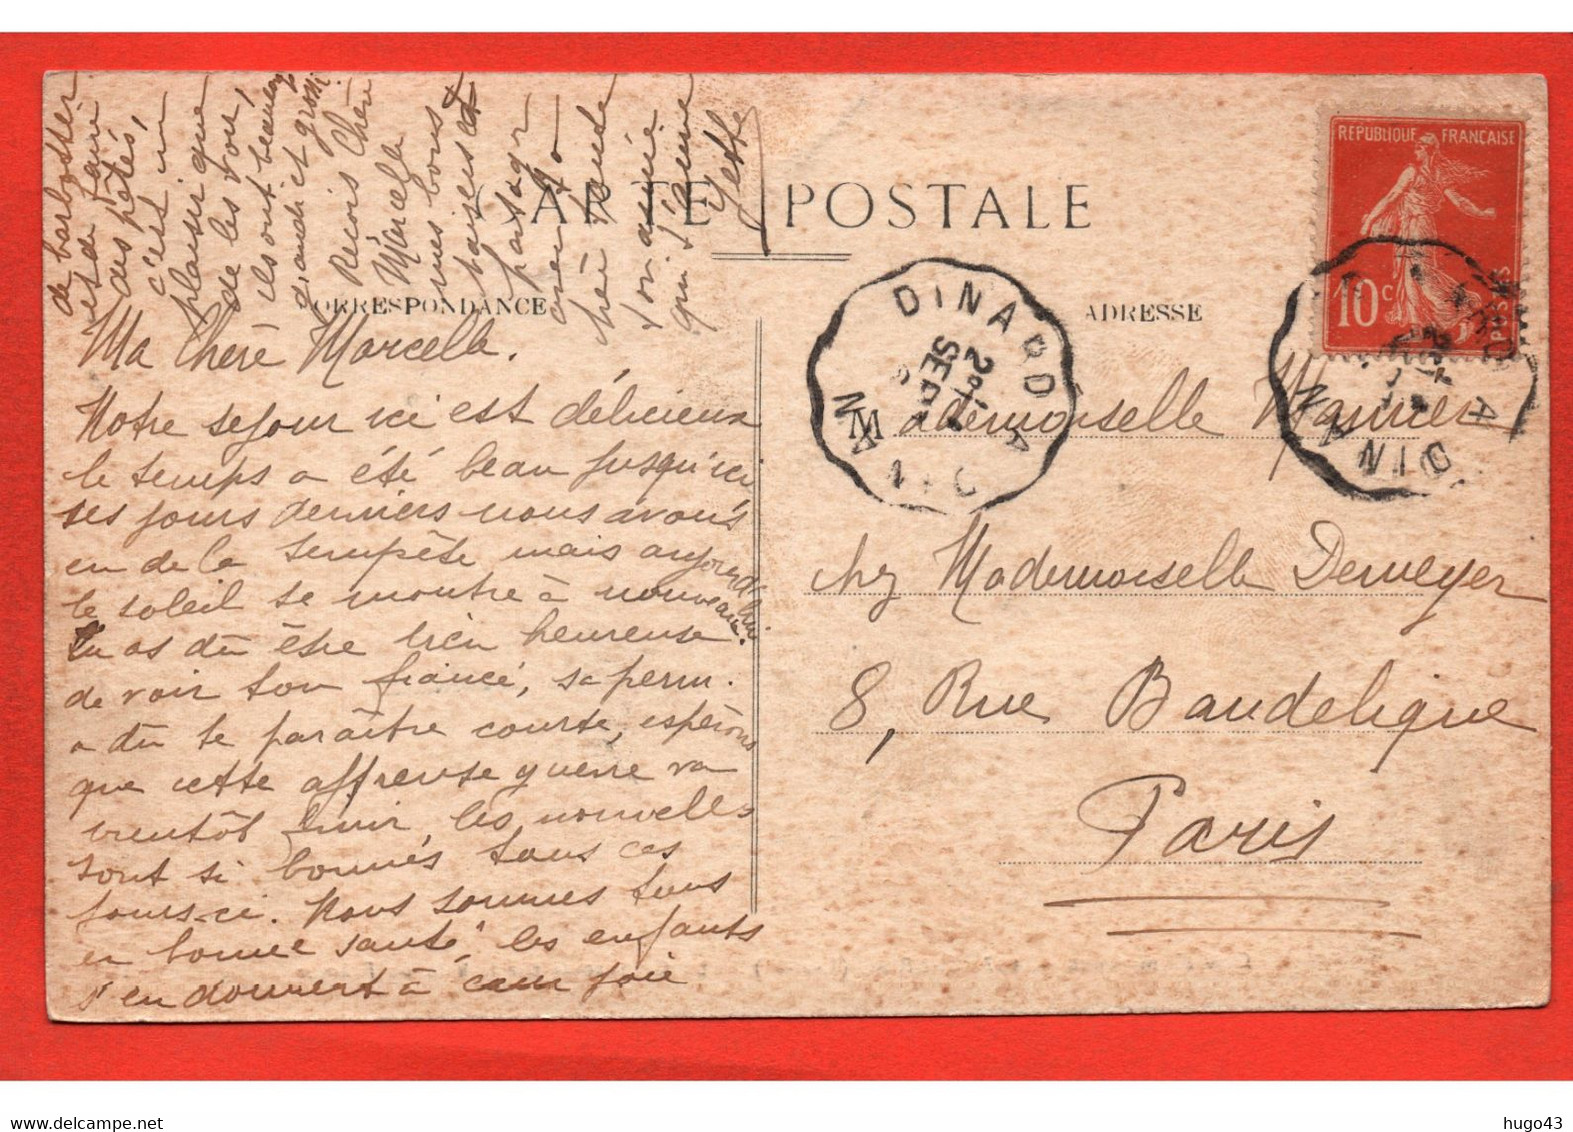 CARTE POSTALE
CORRESPONDANCE
ADRESSE
REPUBLIQUE FRANÇAISE
10c
POSTES
DINARD A
2°
SEPT
DINAN
DINARD A
DINAN
Ma Chère Marcella.
Notre séjour ici est délicieux
le temps a été beau jusqu'ici
ses jours derniers nous avons
eu de la tempête mais aujourd'hui
le soleil se montre à nouveau.
Tu as dû être bien heureuse
de voir ton fiancé, sa perm.
a dû te paraître courte, espérons
que cette affreuse guerre va
bientôt finir, les nouvelles
sont si bonnes tous ces
jours-ci. Nous sommes tous
en bonne santé, les enfants
s'en donnent à cœur joie
de barbotter
et de faire
des pâtés,
c'est un
plaisir que
de les voir,
ils ont beaucoup
grandi et grossi
Reçois Chère
Marcella
mes bons
baisers et
partager
avec ta
chère tante
ton amie
qui t'aime
Yette
Mademoiselle Marnier
chez Mademoiselle Demeyer
8, Rue Baudelique
Paris
hugo43